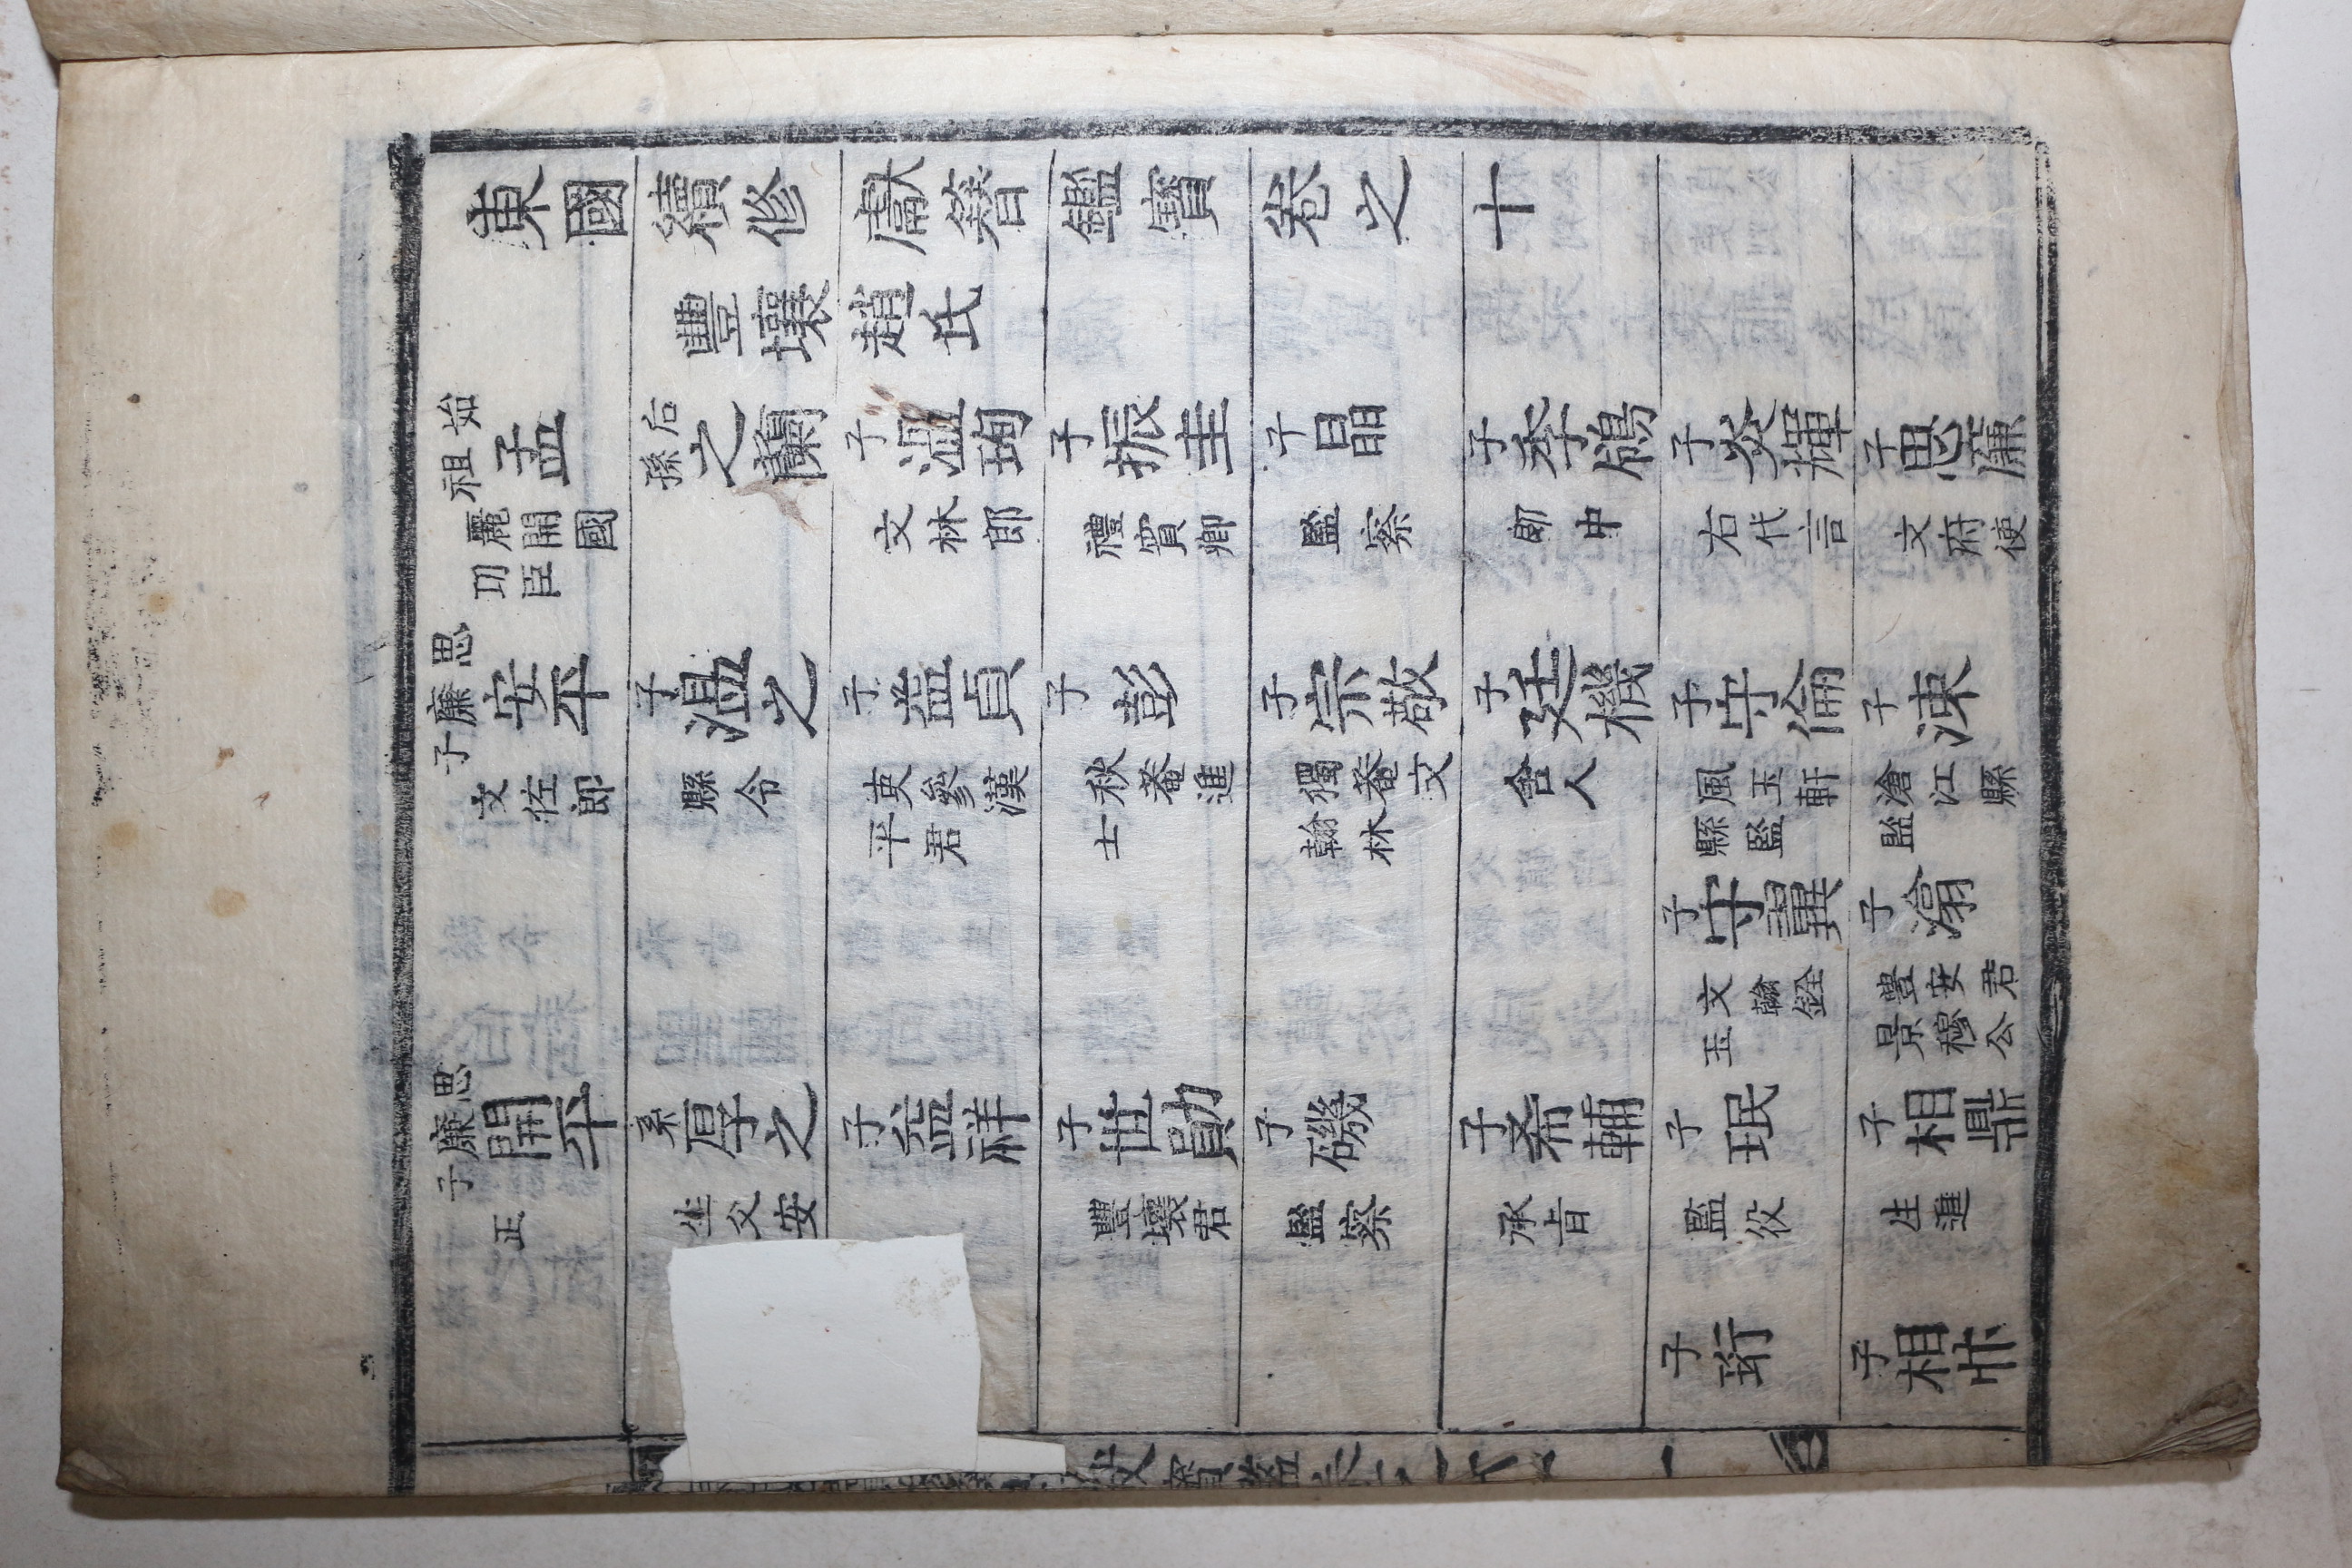 東國續修獻簪鑑寶卷之十
豐壤趙氏
始祖 孟 麗開國功臣
后孫 之蘭
子 溫珣 文林郎
子 振圭 禮賓卿
子 晶 監察
子 季鴒 郎中
子 炎輝 右代言
子 思廉 文府使
思廉子 安平 文佐郎
子 溫之 縣令
子 益貞 吏參漢平君
子 彭 秋菴進士
子 宗敬 獨菴文翰林
子 廷機 舍人
子 守倫 風玉軒縣監
子 涑 滄江縣監
子 守翼 文翰銓玉
子 滃 豊安君景穆公
思廉子 開平 正
系 厚之 生父安
子 益祥
子 世勛 豐壤君
子 磯 監察
子 希輔 承旨
子 珉 監役
子 相鼎 生進
子 珩
子 相
寶鑑卷之十
一